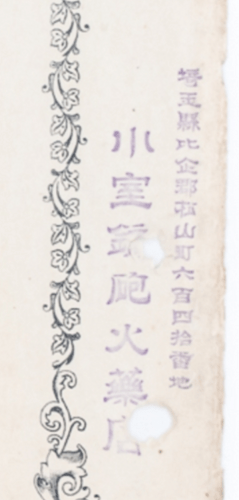 埼玉縣比企郡松山町六百四拾番地
小室銃砲火藥店